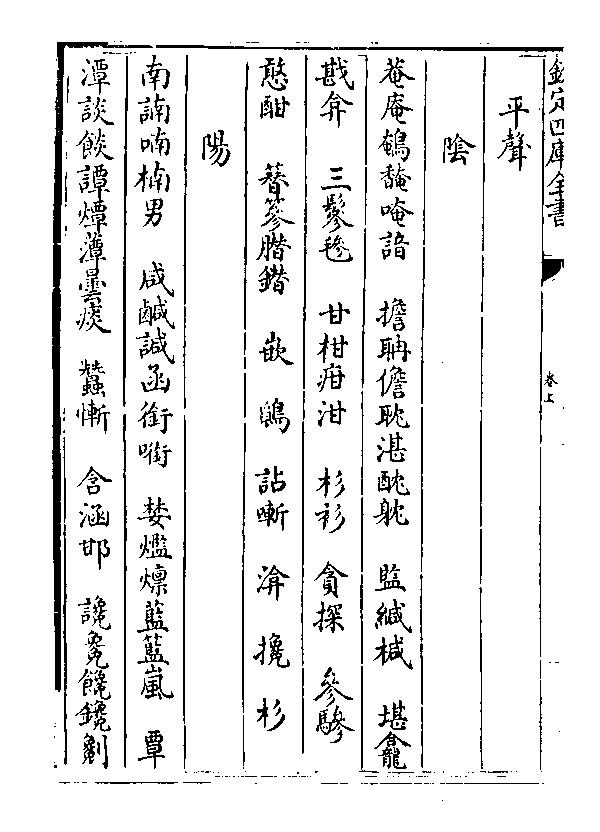 欽定四庫全書
卷上
平聲
陰
菴庵鵪馣唵諳 擔聃儋耽湛酖躭 監緘椷 堪龕
戡弇 三鬖毿 甘柑疳泔 杉衫 貪探 參驂
憨酣 簪篸鐕 嵌 鵮 詀 渰 攙杉
陽
南諵喃楠男 咸鹹諴函銜㘅 婪爁燣藍籃嵐 覃
潭談餤譚燂藫曇痰 蠶慚 含涵邯 讒毚饞鑱劖